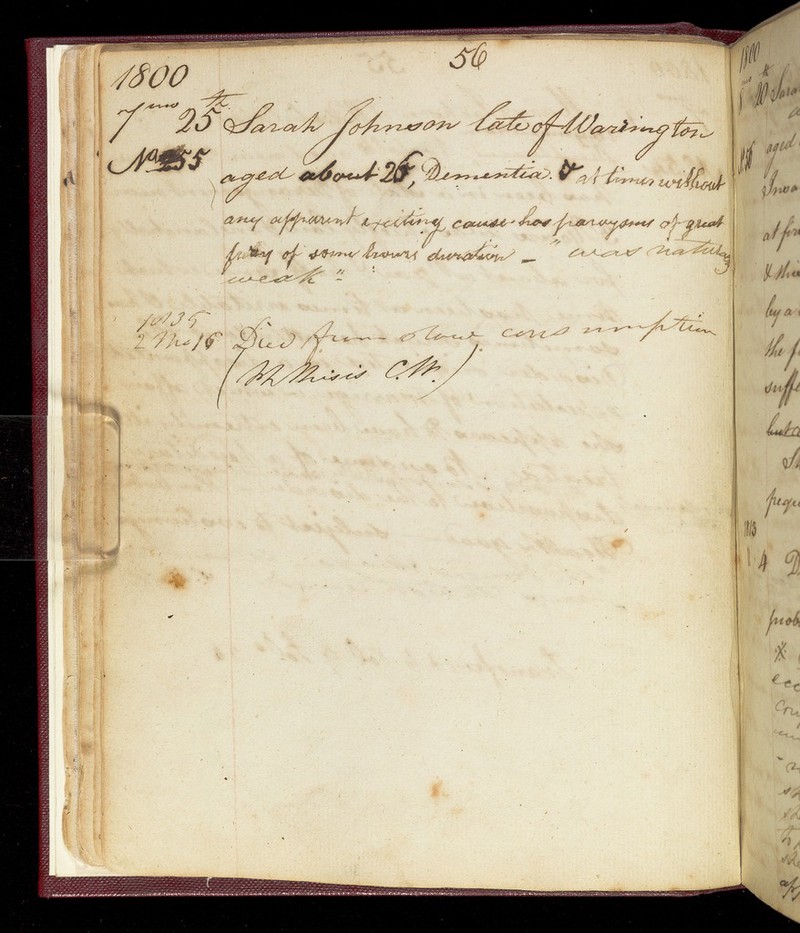 56
1800
7mo 25th Sarah Johnson late of Warrington
No 55 aged about 26, Dementia. & at times without
any apparent exciting cause has paroxysms of great
fury of some hours duration – "was naturally
weak"
1835
2 Mo 15 Died from slow consumption
(Phthisis C.W.)
1800
mo th
8 20 Sara
No 56 aged
at fir
& thi
by a
the f
suffe
but a
1813
4 D
prob